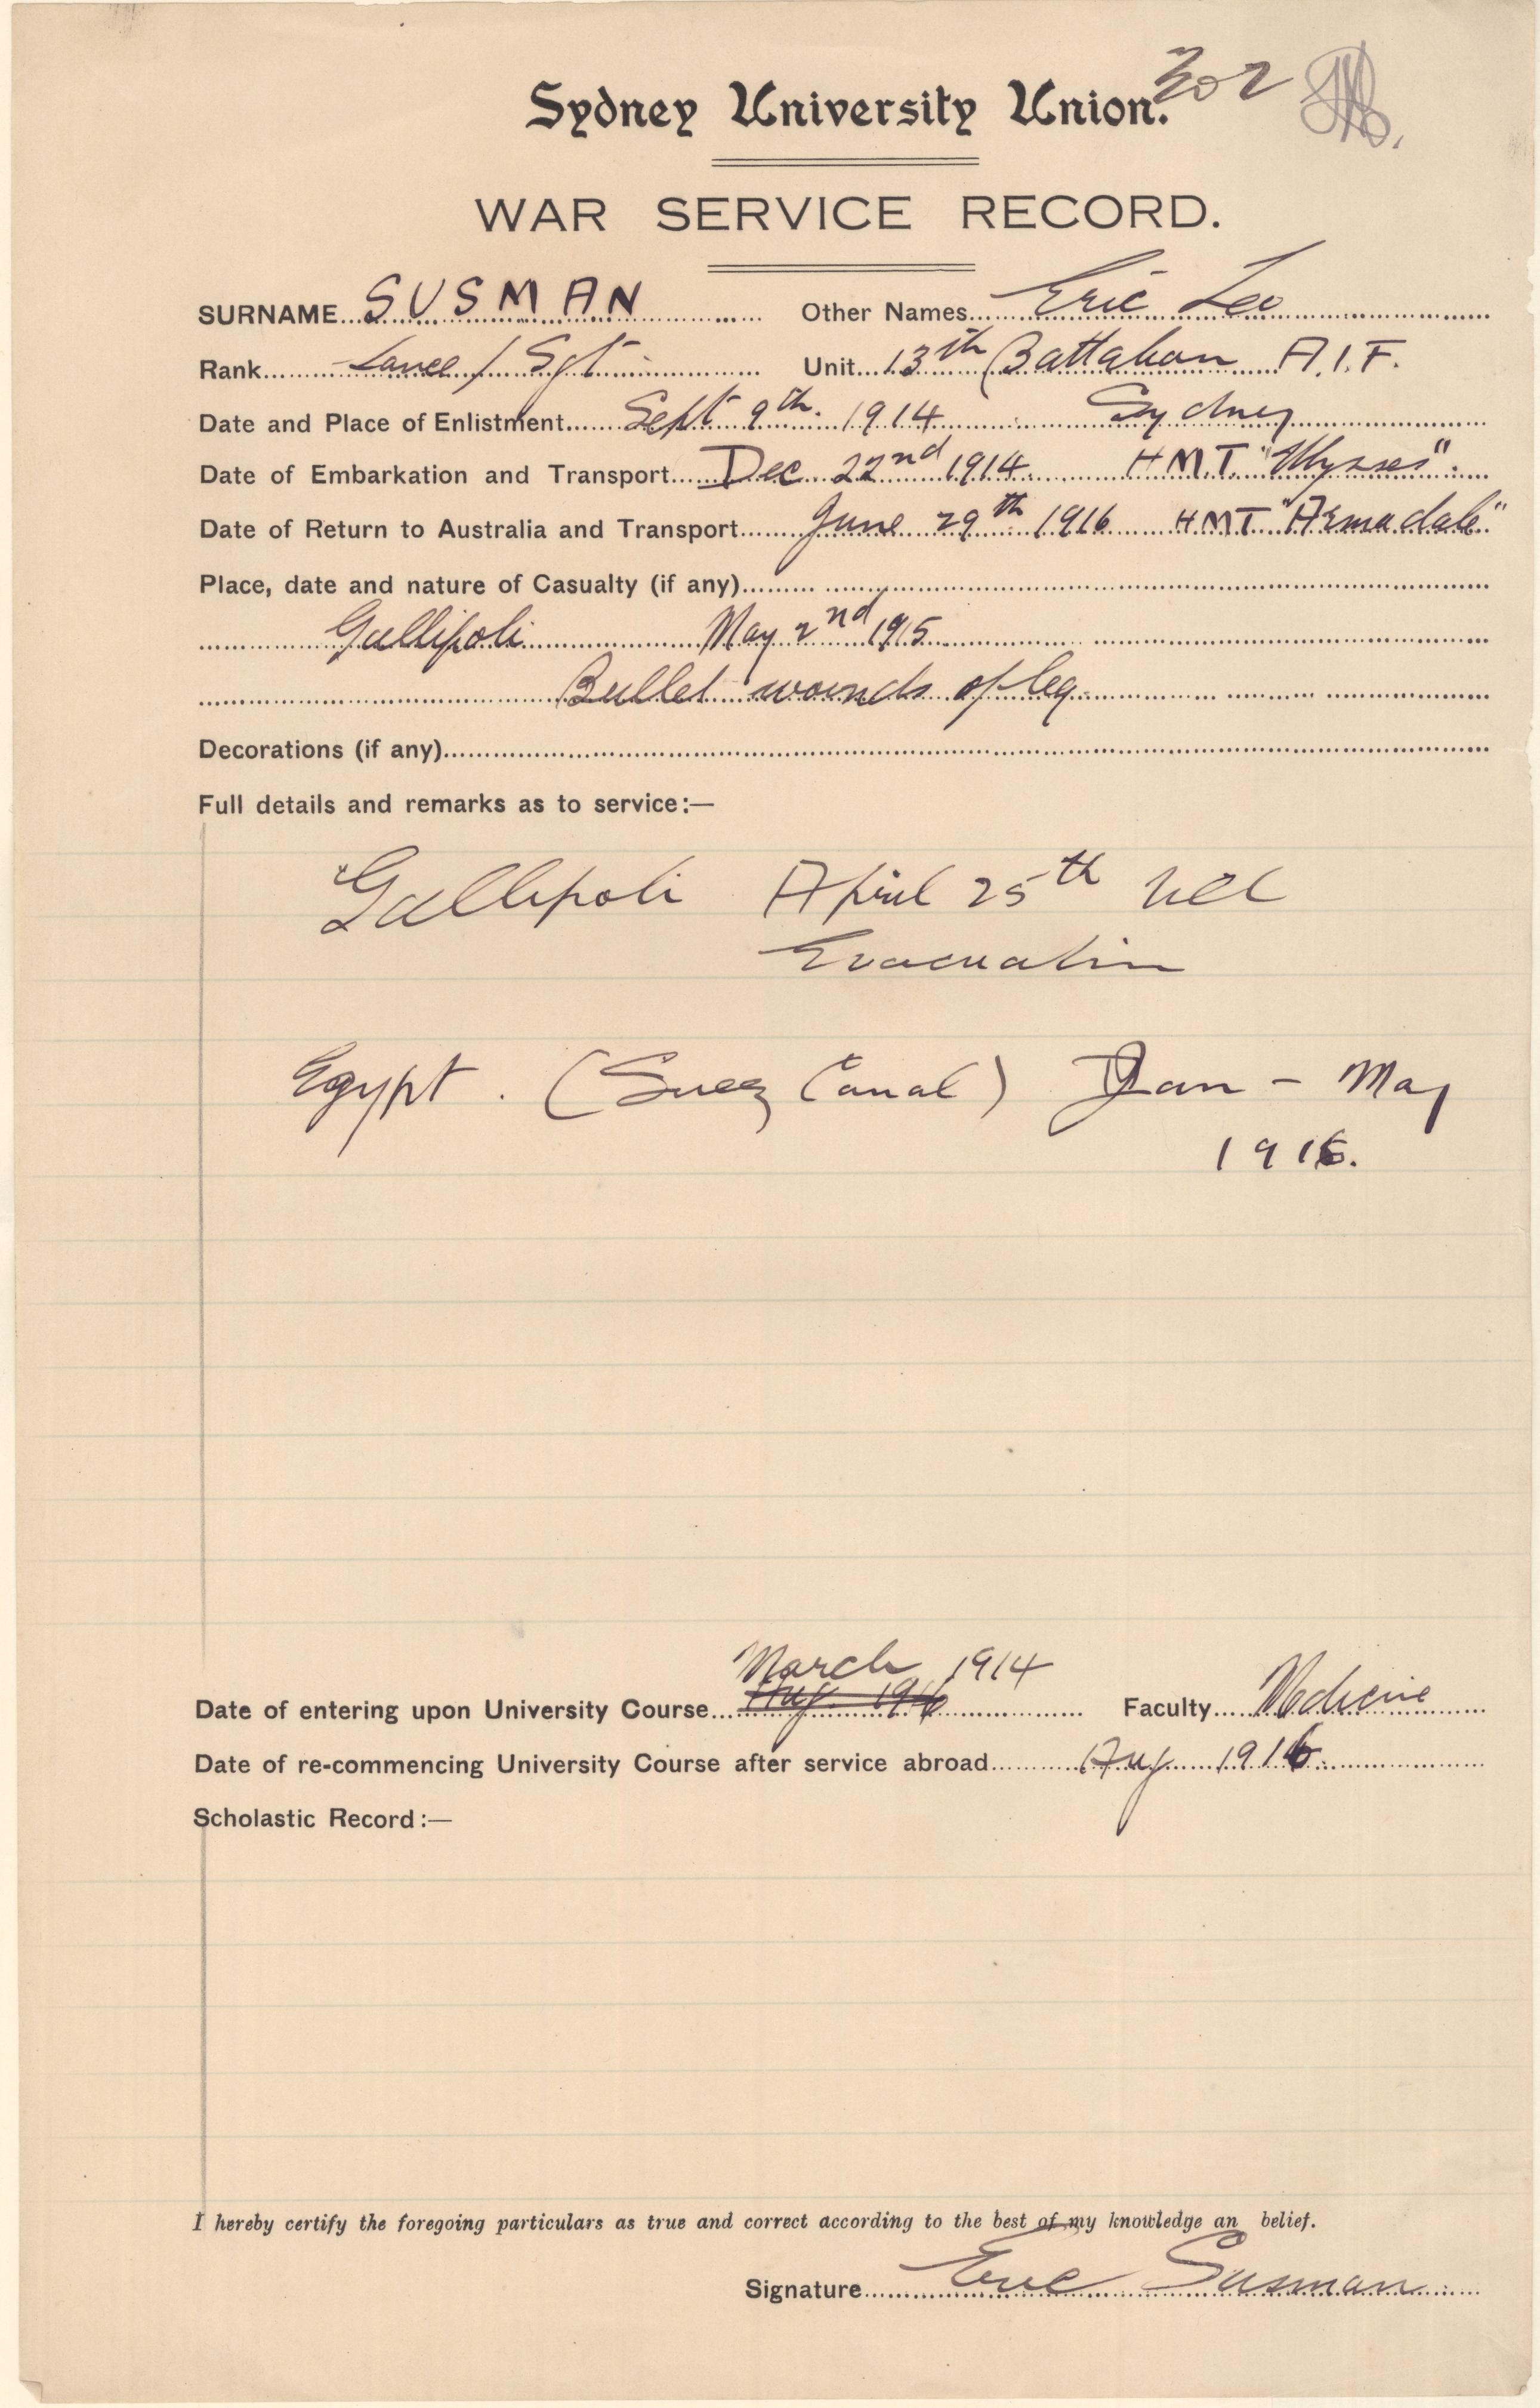 302
Sydney University Union.
WAR SERVICE RECORD.
SURNAME SUSMAN Other Names Eric Leo
Rank Lance / Sgt Unit 13th Battalion A.I.F.
Date and Place of Enlistment Sept 9th. 1914 Sydney
Date of Embarkation and Transport Dec 22nd 1914 H.M.T. "Ulysses".
Date of Return to Australia and Transport June 29th 1916 HMT "Armadale"
Place, date and nature of Casualty (if any)
Gallipoli May 2nd 1915
Bullet wounds of leg
Decorations (if any)
Full details and remarks as to service:—
Gallipoli April 25th till
Evacuation
Egypt. (Suez Canal) Jan - May
1916.
March 1914
Date of entering upon University Course Aug 1916 Faculty Medicine
Date of re-commencing University Course after service abroad Aug 1916
Scholastic Record:—
I hereby certify the foregoing particulars as true and correct according to the best of my knowledge an belief.
Signature Eric Susman